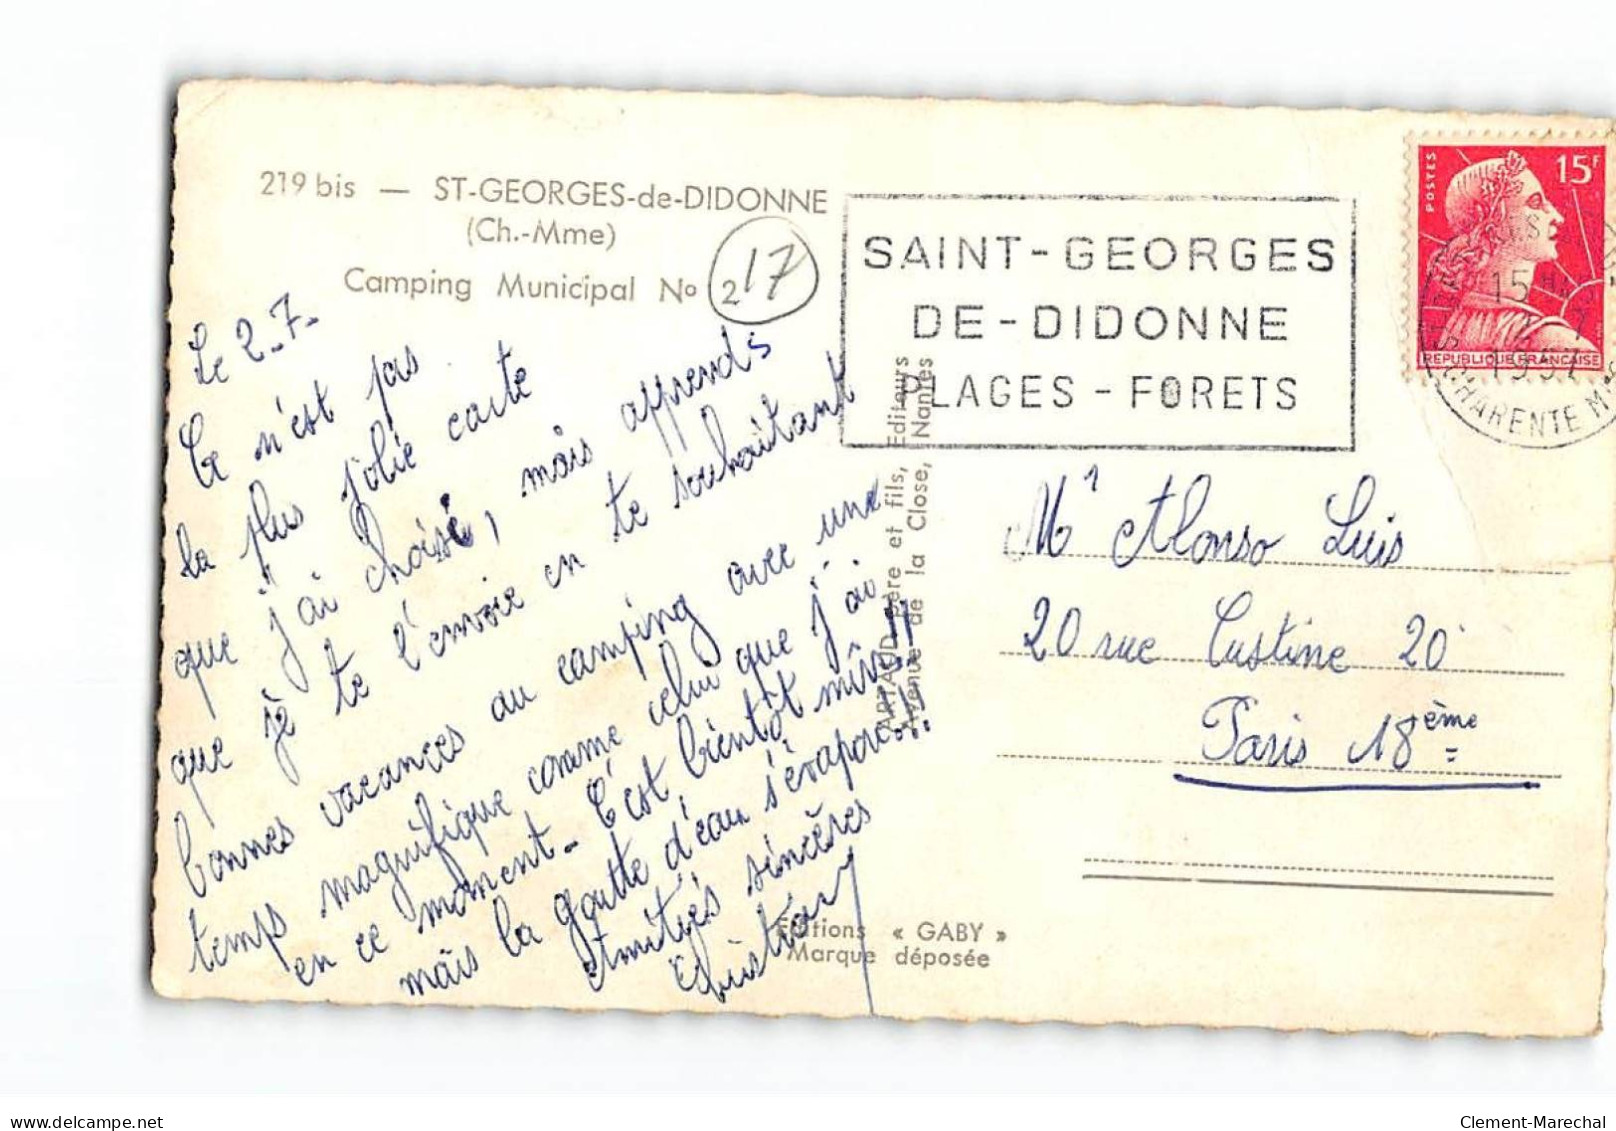 219 bis — ST-GEORGES-de-DIDONNE
(Ch.-Mme)
Camping Municipal No 2
17
SAINT-GEORGES
DE-DIDONNE
PLAGES - FORETS
POSTES
15F
REPUBLIQUE FRANCAISE
15H
2 - 7
1957
CHARENTE Mme
Le 2-7-
Ce n'est pas
la plus jolie carte
que j'ai choisie, mais apprends
que je te l'envoie en te souhaitant
bonnes vacances au camping avec une
temps magnifique comme celui que j'ai
en ce moment - C'est bientôt
mais la goutte d'eau s'évapore!!
Amitiés sincères
Christian
ARTAUD Père et fils, Editeurs
Avenue de la Close, Nantes
Editions « GABY »
Marque déposée
Mr Alonso Luis
20 rue Custine 20
Paris 18ème
delcampe.net
Clement-Marechal